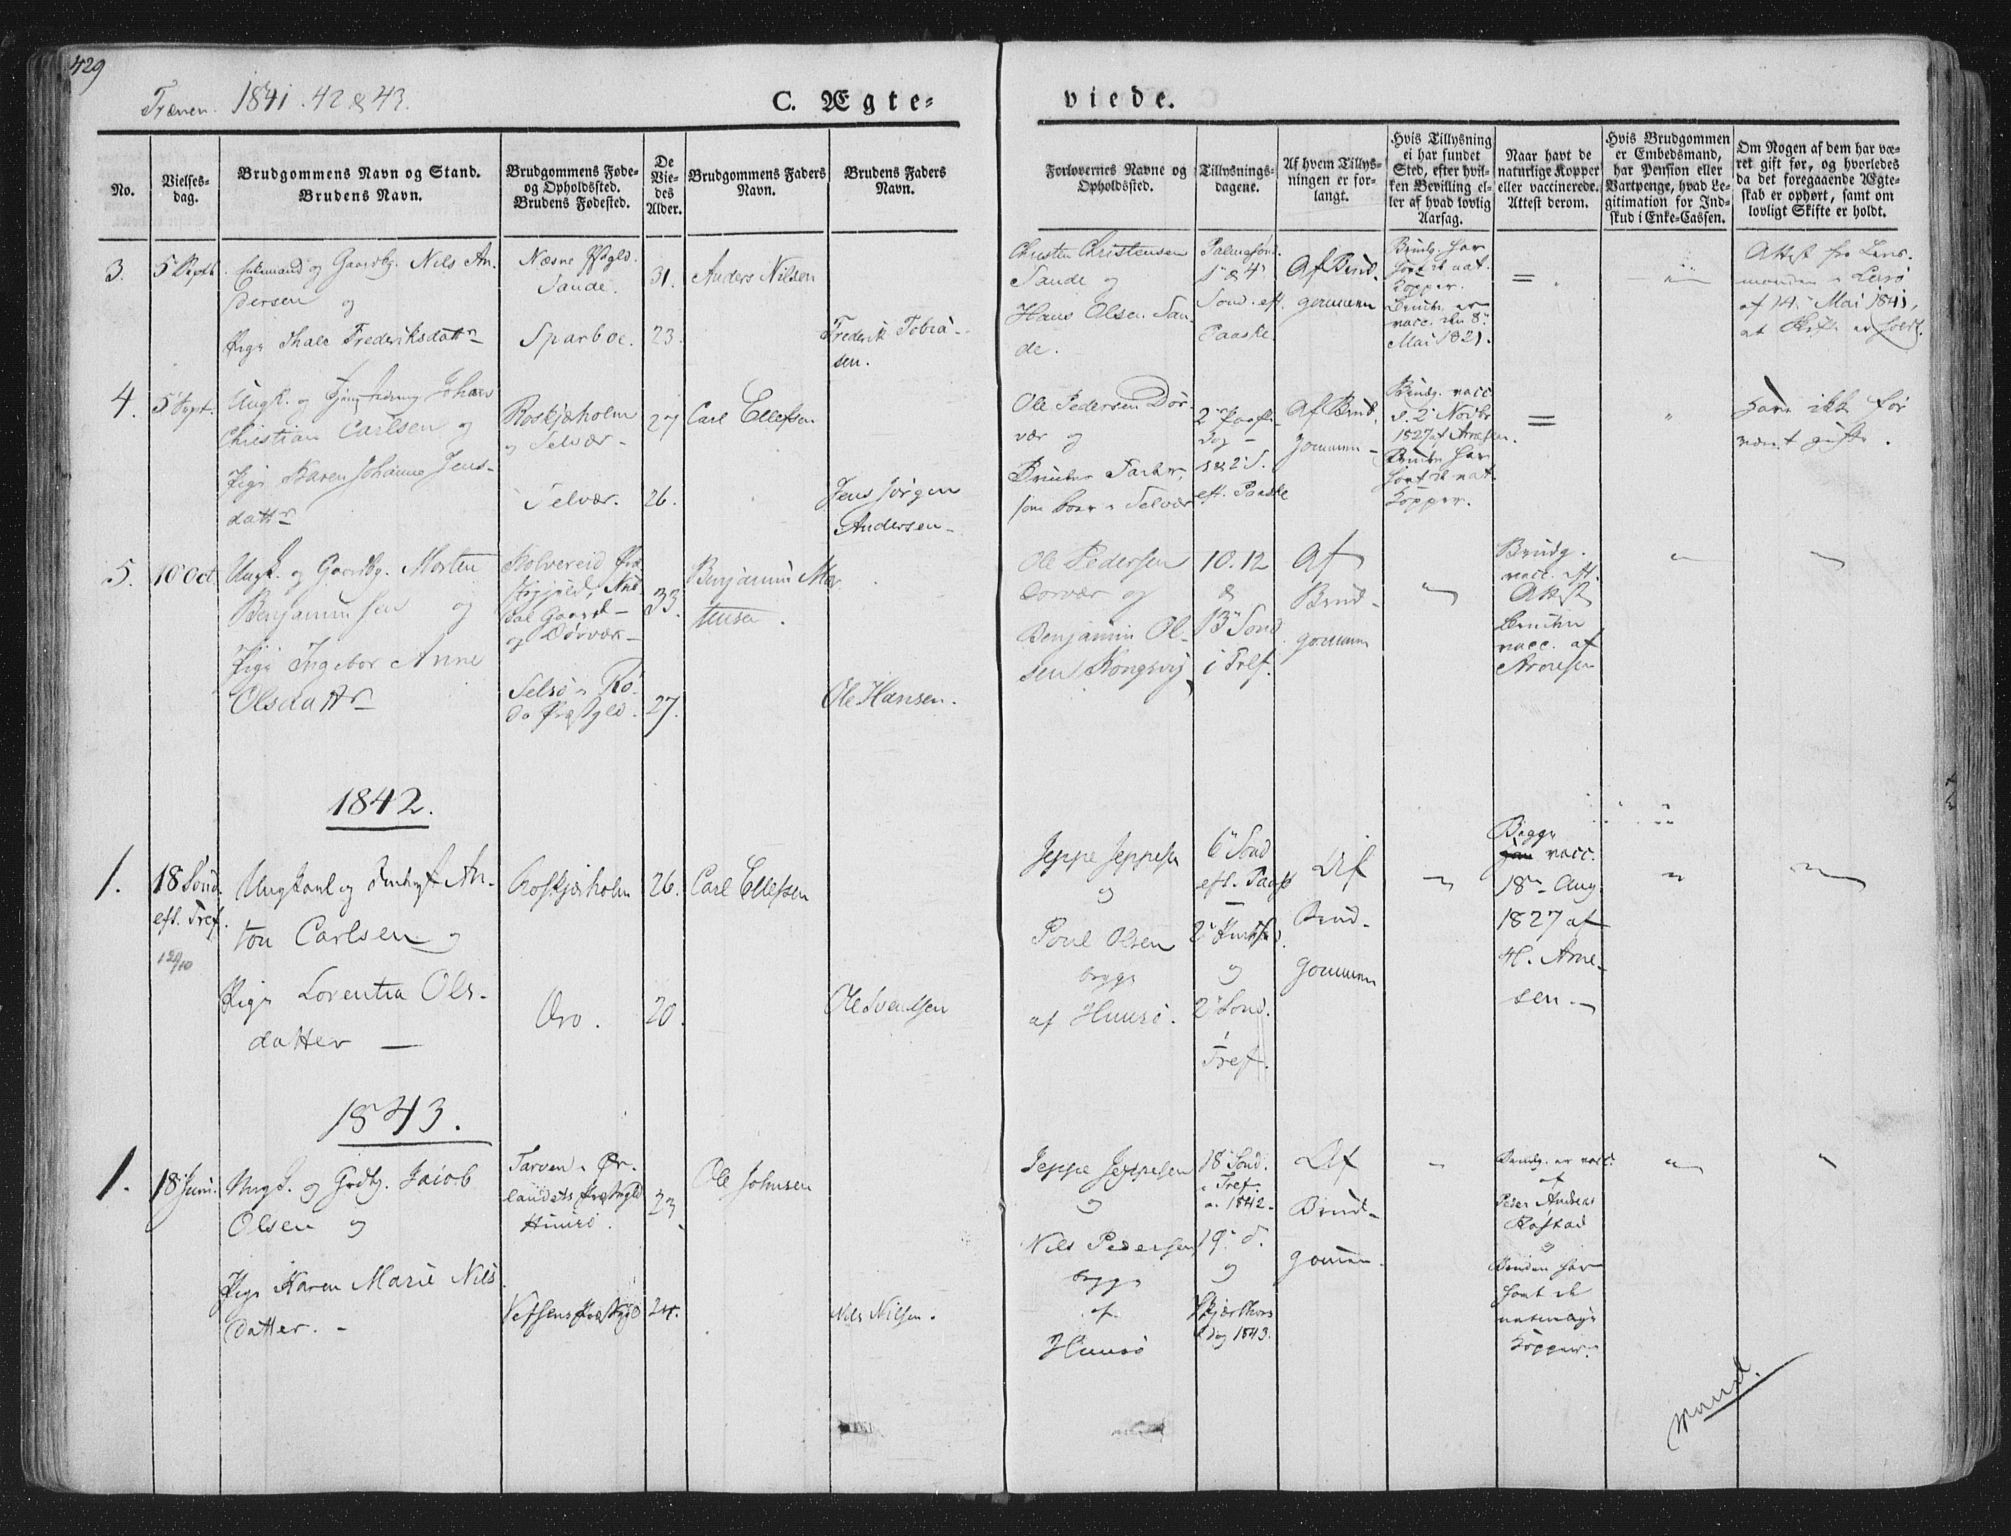 429
Trænen. 1841. 42 & 43.
C. Ægte=
viede.
No.
Vielses-
dag.
Brudgommens Navn og Stand.
Brudens Navn.
Brudgommens Føde-
og Opholdssted.
Brudens Fødested.
De
Vie-
des
Alder.
Brudgommens Faders
Navn.
Brudens Faders
Navn.
Forlovernes Navne og
Opholdssted.
Tillysnings-
dagene.
Af hvem Tillys-
ningen er for-
langt.
Hvis Tillysning
ei har fundet
Sted, efter hvil-
ken Bevilling el-
ler af hvad lovlig
Aarsag.
Naar havt de
naturlige Kopper
eller vaccinerede.
Attest derom.
Hvis Brudgommen
er Embedsmand,
har Pension eller
Vartpenge, hvad Le-
gitimation for Ind-
skud i Enke-Cassen.
Om Nogen af dem har væ-
ret gift før, og hvorledes
da det foregaaende Ægte-
skab er ophørt, samt om
lovligt Skifte er holdt.
3.
5 Sept.
Enkemand og Gaardbr. Nils An-
dersen og
Pige Thale Frederiksdattr
Næsne Pstgld.
Sande.
Sparboe.
31.
23.
Anders Nilsen
Frederik Tobia-
sen.
Christen Christensen
Sande og
Hans Olsen San-
de.
Palmesønd.
1 & 4
Sond. eft.
Paaske.
Af Brud-
gommen
Brudg. har
havt de nat.
Kopper.
Bruden er
vacc. den 8
Mai 1821.
=
Attest fra Lens-
manden i Lurø
af 14 Mai 1841,
at Skifte er holdt.
4.
5 Sept.
Ungk. og Johan
Christian Carlsen og
Pige Karen Johanna Jens-
dattr
Roskjæholm
og Selvær-
Selvær.
27
26.
Carl Ellefsen
Jens Jørgen
Andersen-
Ole Pedersen Dor-
vær og
Brudens
som boer i Selvær
2 Paaske
dag -
1 & 2 S.
eft. Paaske
Af Brud-
gommen-
Brudg. vacc
d. 2 Novbr
1827 af Arnesen.
Bruden har
havt de nat.
Kopper.
=
Have ikke før
været gifte.
5.
10 Oct
Ungk. og Gaardbr. Morten
Benjaminsen og
Pige Ingebor Anne
Olsdattr
Kolvereid
dal Gaard-
og Dørvær-
Selsø i Rø-
dø Præstgld.
33.
27.
Benjamin Mor-
tensen.
Ole Hansen.
Ole Pedersen
Dorvær og
Benjamin Ol-
sen Kongsvig
10. 12
&
13 Sond
i Tref.
Af
Brud-
gommen
Brudg.
vacc. eft.
Attest
Bruden
vacc. af
Arnesen
1842.
1.
18 Sønd.
eft. Tref.
Ungkarl og An-
ton Carlsen og
Pige Lorentia Ols-
datter -
Roskjæholm
Oro.
26.
20.
Carl Ellefsen
Ole Svendsen
Jeppe Jeppesen
og
Poul Olsen
begge
af Huusø.
6 Sond
eft. Paaske
og
2 Sond.
Tref.
Af
Brud-
gommen
Begge
vacc.
18 Aug
1827 af
H. Arne-
sen.-
1843.
1.
18 Juni.
Ungk. og Grdbr. Jacob
Olsen og
Pige Karen Marie Nils
datter. -
Tarven i Ør-
landets Præstegld
Huusø.
Vefsens Præstgld
23.
24.
Ole Johnsen
Nils Nilsen.
Jeppe Jeppesen
og
Nils Pedersen
begge
af
Huusø
18 Sond.
i Tref.
a. 1842.
19 d.
og
Skjærthors
dag 1843.
Af
Brud-
gommen.
Brudg. er vacc.
af
Peder Andreas
Røstad
og
Bruden har
havt de
naturlige
Kopper.